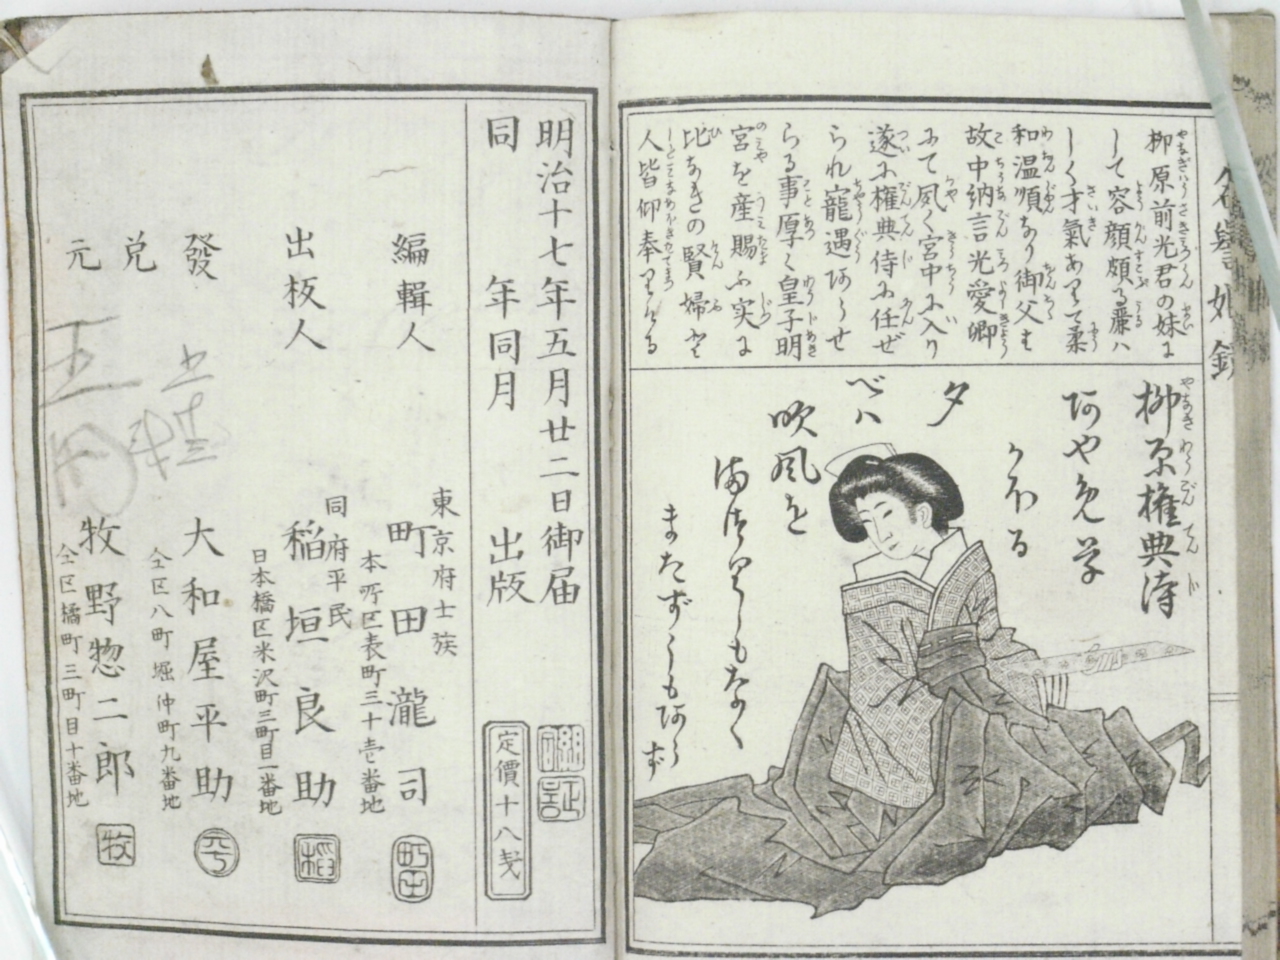 柳原前光君の妹に
して容顔頗る麗ハ
しく才氣ありて柔
和温順なり御父を
故中納言光愛卿
にて夙く宮中に入り
遂に権典侍に任ぜ
られ寵遇浅からせ
らる事厚く皇子明
宮を産賜ふ実に
比なきの賢婦と
人皆仰奉りける
柳原権典侍
あやめ草
かほる
夕
べハ
吹風を
またずしもあらず
明治十七年五月廿二日御届
同 年同月 出版
定價十八戔
編輯人
東京府士族
町田瀧司
本所区表町三十壱番地
出板人
同府平民
稲垣良助
日本橋区米沢町三町目一番地
發
兌
元
大和屋平助
仝区八町堀仲町九番地
牧野惣二郎
仝区橘町三町目十番地
牧